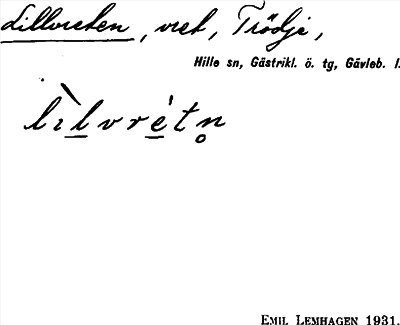 Lillvreten, vret, Trödje,
Hille sn, Gästrikl. ö. tg, Gävleb. l.
lìlvrétn̥
EMIL LEMHAGEN 1931.